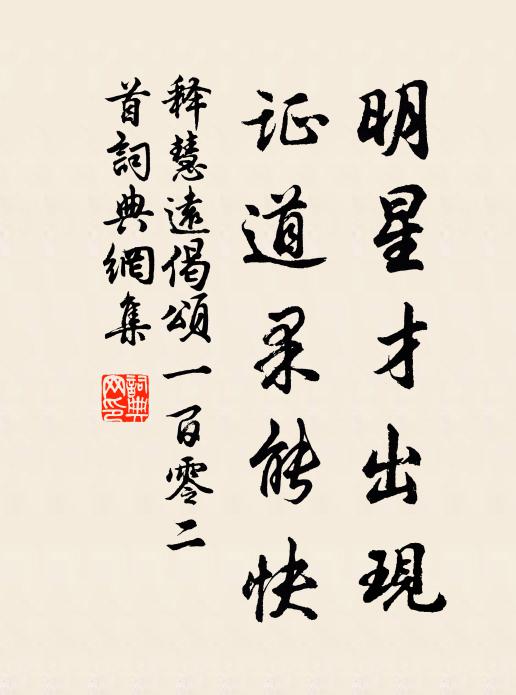 明星才出現
证道果能快
释慧遠偈頌一百零二
首詞典網集
詞典网印